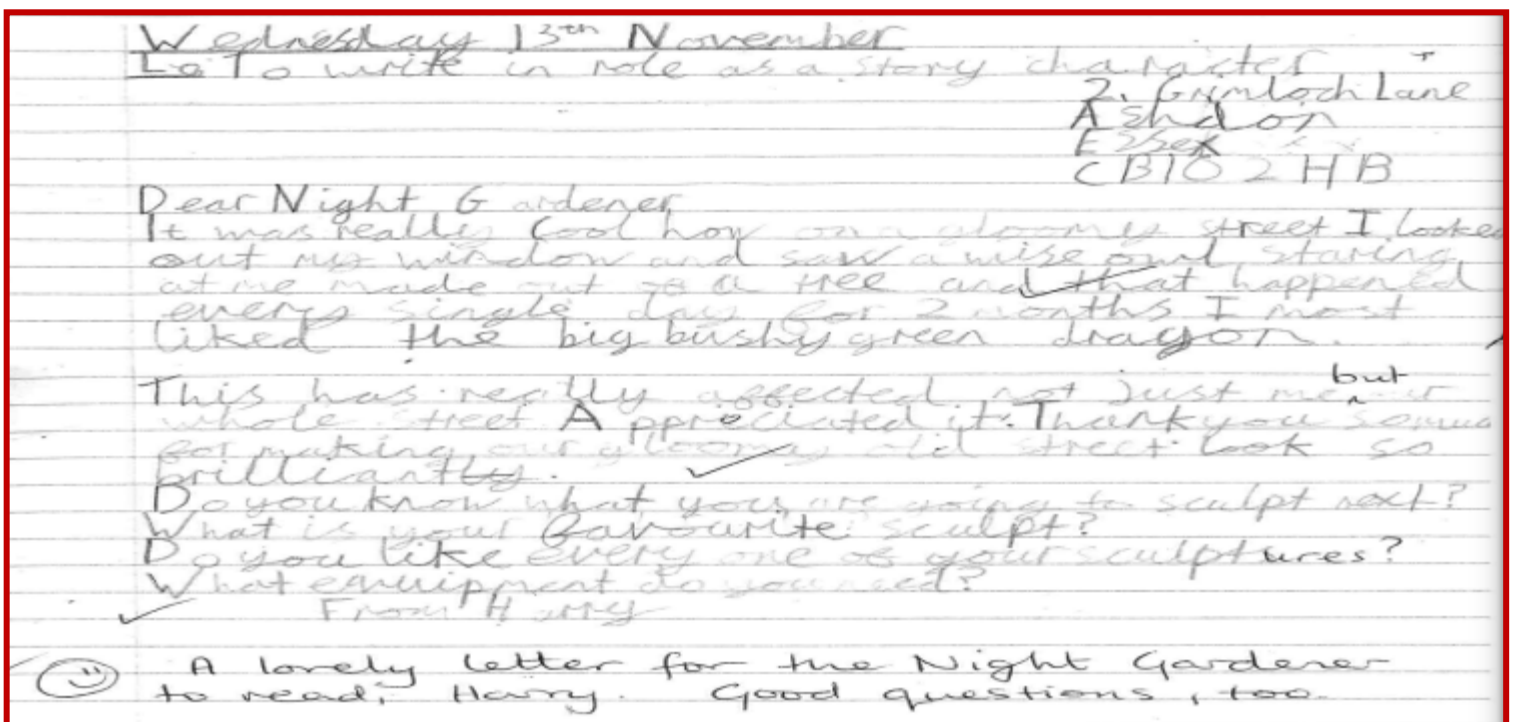 Wednesday 13th November
Lo To write in role as a story character
2. Grimloch Lane
Ashdon
Essex
CB10 2HB
Dear Night Gardener
It was really cool how on a gloomy street I looked
out my window and saw a wise owl staring
at me made out of a tree and that happened
every single day for 2 months I most
liked the big bushy green dragon.
but
This has really affected not just me our
whole street Appreciated it. Thank you
for making our gloomy old street look so
brilliantly.
Do you know what you are going to sculpt next?
What is your favourite sculpt?
Do you like every one of your sculptures?
What equipment do you need?
From Harry
A lovely letter for the Night Gardener
to read, Harry. Good questions, too.